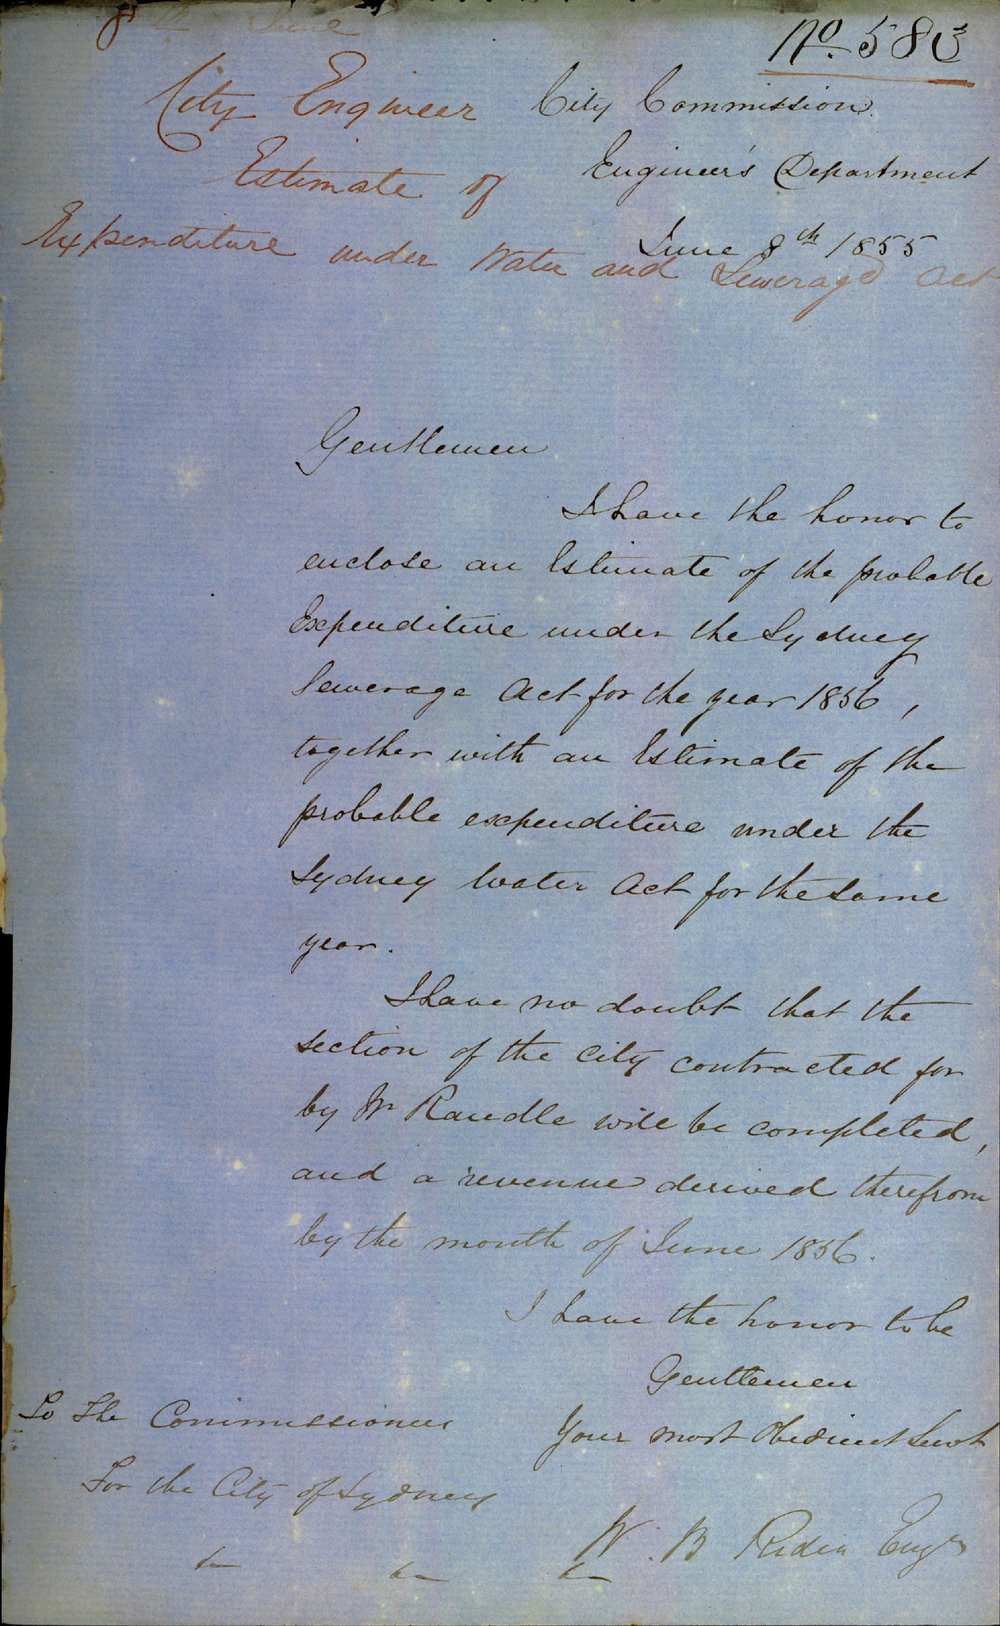 8th June
No. 583
City Engineer
Estimate of
Expenditure under Water and Sewerage Act
City Commission.
Engineer's Department
June 8th 1855
Gentlemen
I have the honor to
enclose an Estimate of the probable
Expenditure under the Sydney
Sewerage Act for the year 1856,
together with an Estimate of the
probable expenditure under the
Sydney Water Act for the same
year.
I have no doubt that the
section of the City contracted for
by Mr Randle will be completed,
and a revenue derived therefrom
by the month of June 1856.
I have the honor to be
Gentlemen
Your most Obedient Servt
W. B Rider Engr
To The Commissioners
For the City of Sydney